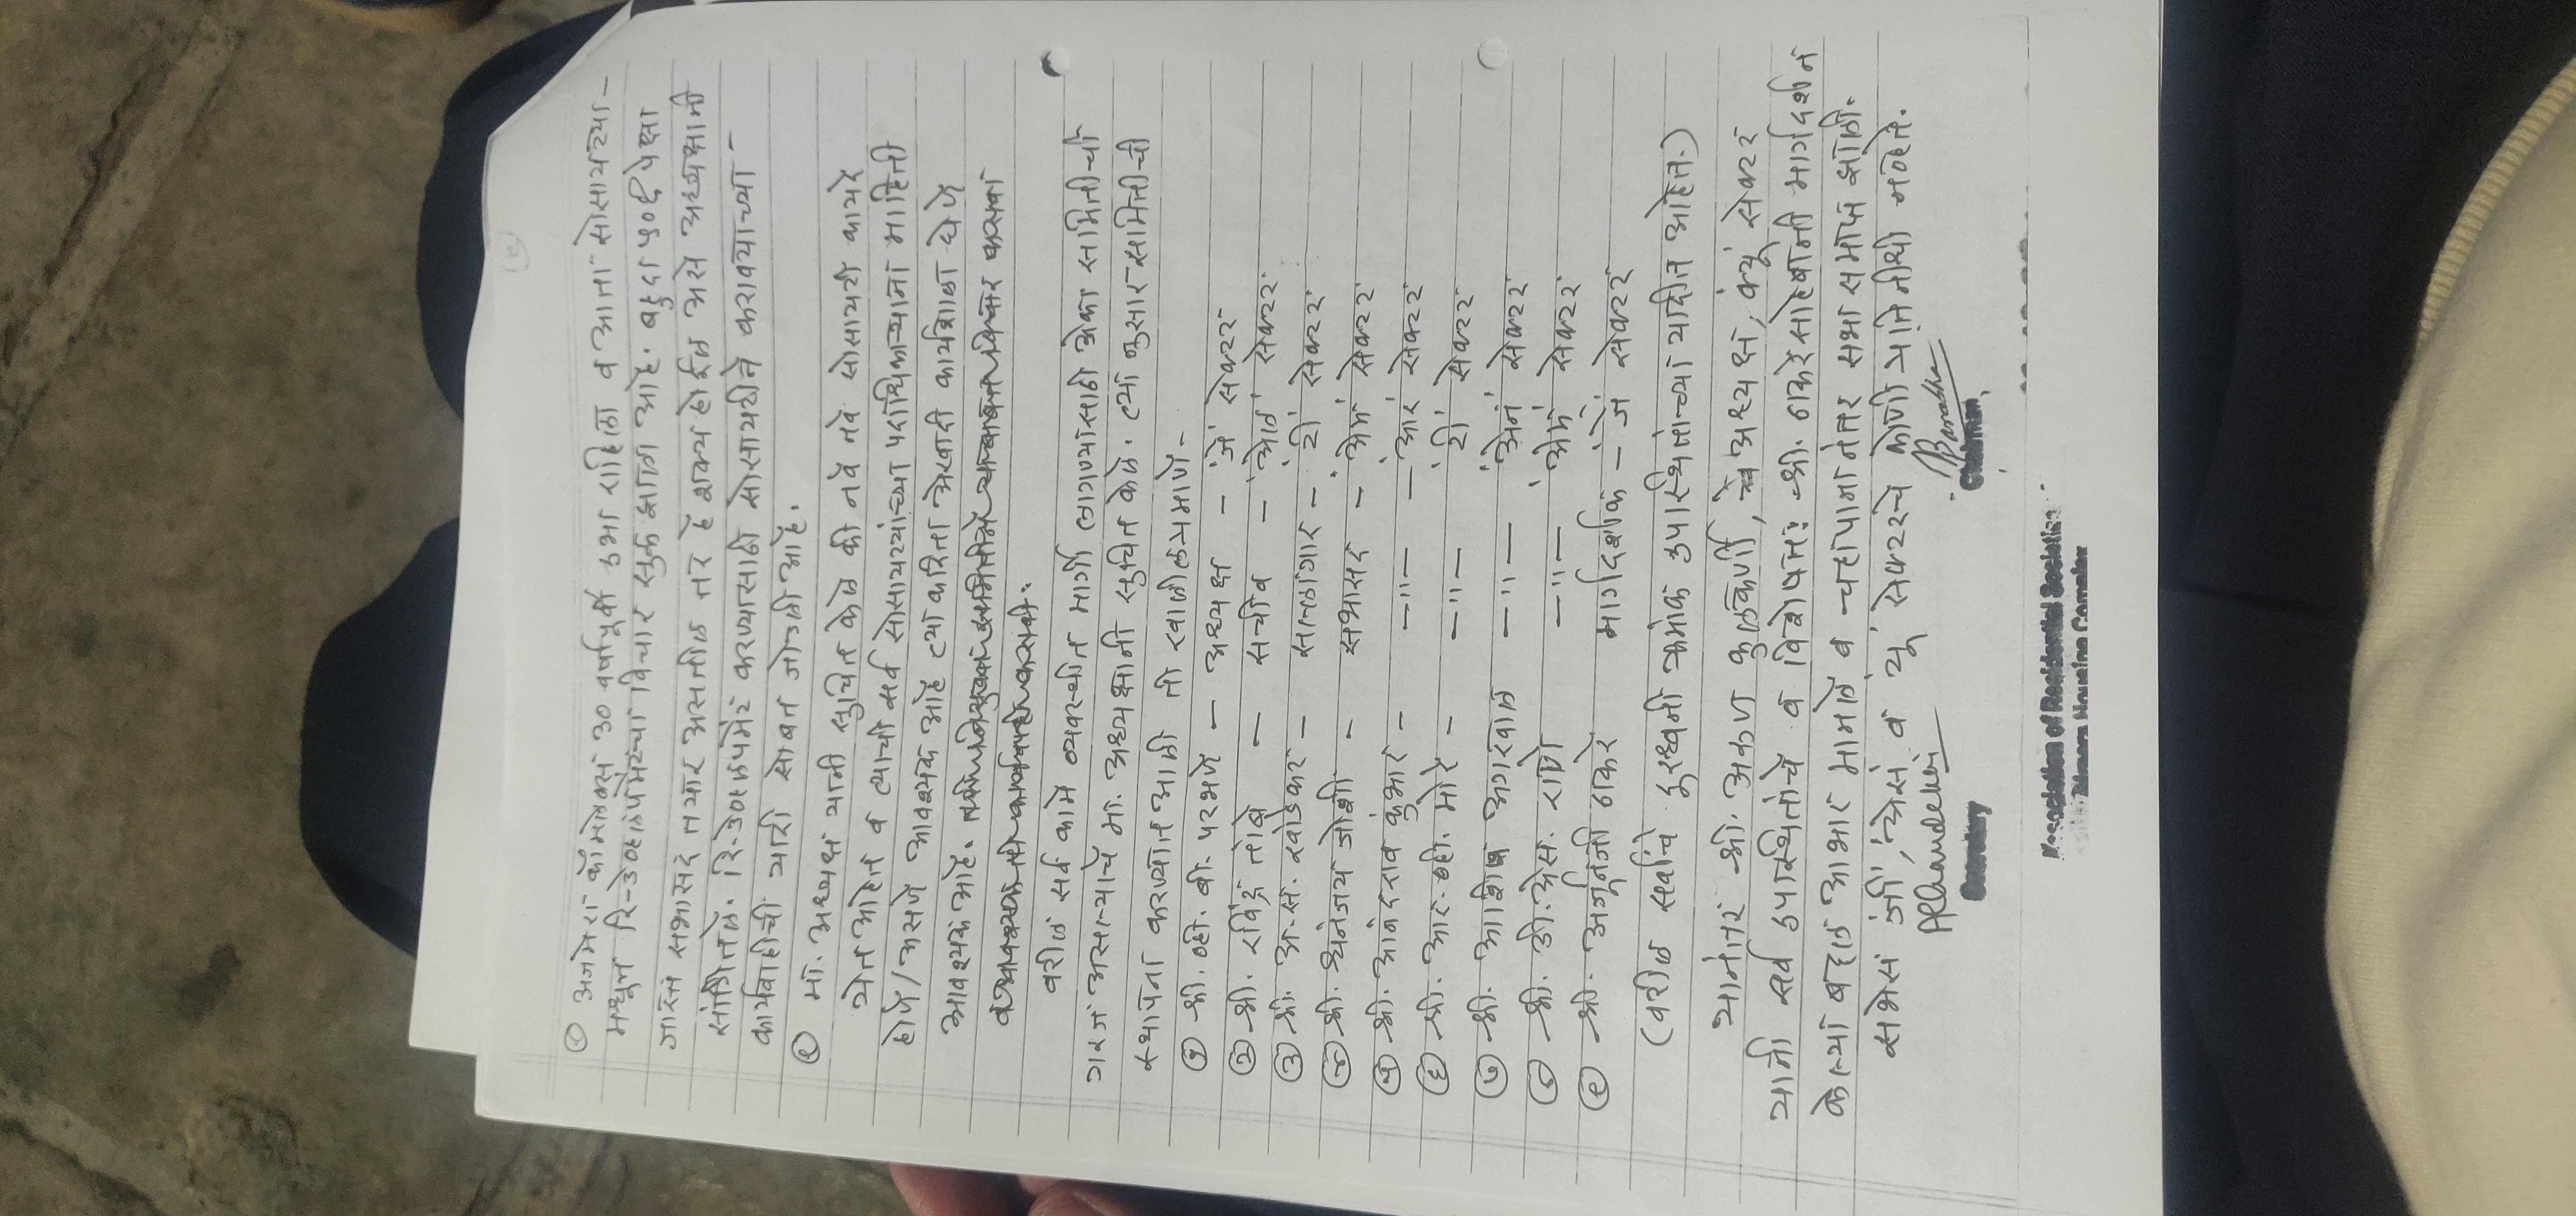 ८) अजमेरा कॉम्प्लेक्स ३० वर्षापूर्वी उभा राहिला व आता सोसायट्या-
मधून रि-डेव्हलपमेंटचा विचार सुरू झाला आहे. बहुदा ५०% पेक्षा
जास्त सभासद तयार असतील तर हे शक्य होईल असे अध्यक्षानी
सांगितले. रि-डेव्हलपमेंट करण्यासाठी सोसायटीने करावयाच्या
कार्यवाहीची यादी सोबत जोडली आहे.
९) मा. अध्यक्ष यानी सुचित केले की नवे नवे सोसायटी कायदे
येत आहेत व त्याची सर्व सोसायट्यांच्या पदाधिकाऱ्याना माहिती
होणे/असणे आवश्यक आहे त्या करिता अेखादी कार्यशाळा घेणे
आवश्यक आहे.
वरील सर्व कामे व्यवस्थीत मार्गी लागण्यासाठी अेका समितीची
गरज असल्याचे मा. अध्यक्षानी सुचित केले. त्या नुसार समितीची
स्थापना करण्यात आली ती खालीलप्रमाणे-
१) श्री. व्ही. बी. परभणे - अध्यक्ष - 'जे' सेक्टर
२) श्री. रविंद्र तांबे - सचीव - 'अेल' सेक्टर
३) श्री. अ. स. खांडेकर - सल्लागार - 'टी' सेक्टर
४) श्री. धनंजय जोशी - सभासद - 'अेम' सेक्टर
५) श्री. आनंदराव कुंभार - -"- - 'आर' सेक्टर
६) श्री. आर. व्ही. मोरे - -"- 'टी' सेक्टर
७) श्री. आशिष अगरवाल -"- 'अेन' सेक्टर
८) श्री. डी. अेस. राणे -"- 'अेम' सेक्टर
९) श्री. अर्जूनजी ठाकरे मार्गदर्शक - 'जे' सेक्टर
(वरील सर्वांचे दुरध्वनी क्रमांक उपस्थितांच्या यादीत आहेत.)
यानंतर श्री. अरुण कुलकर्णी, अध्यक्ष, 'क्यू' सेक्टर
यानी सर्व उपस्थितांचे व विशेषतः श्री. ठाकरे साहेबांनी मार्गदर्शन
केल्या बद्दल आभार मानले व चहापानानंतर सभा समाप्त झाली.
सभेस 'जी', 'अेस' व 'यू' सेक्टरचे कोणी प्रतिनीधी नव्हते.
Secretary Chairman
Association of Residential Societies
Ajmera Housing Complex